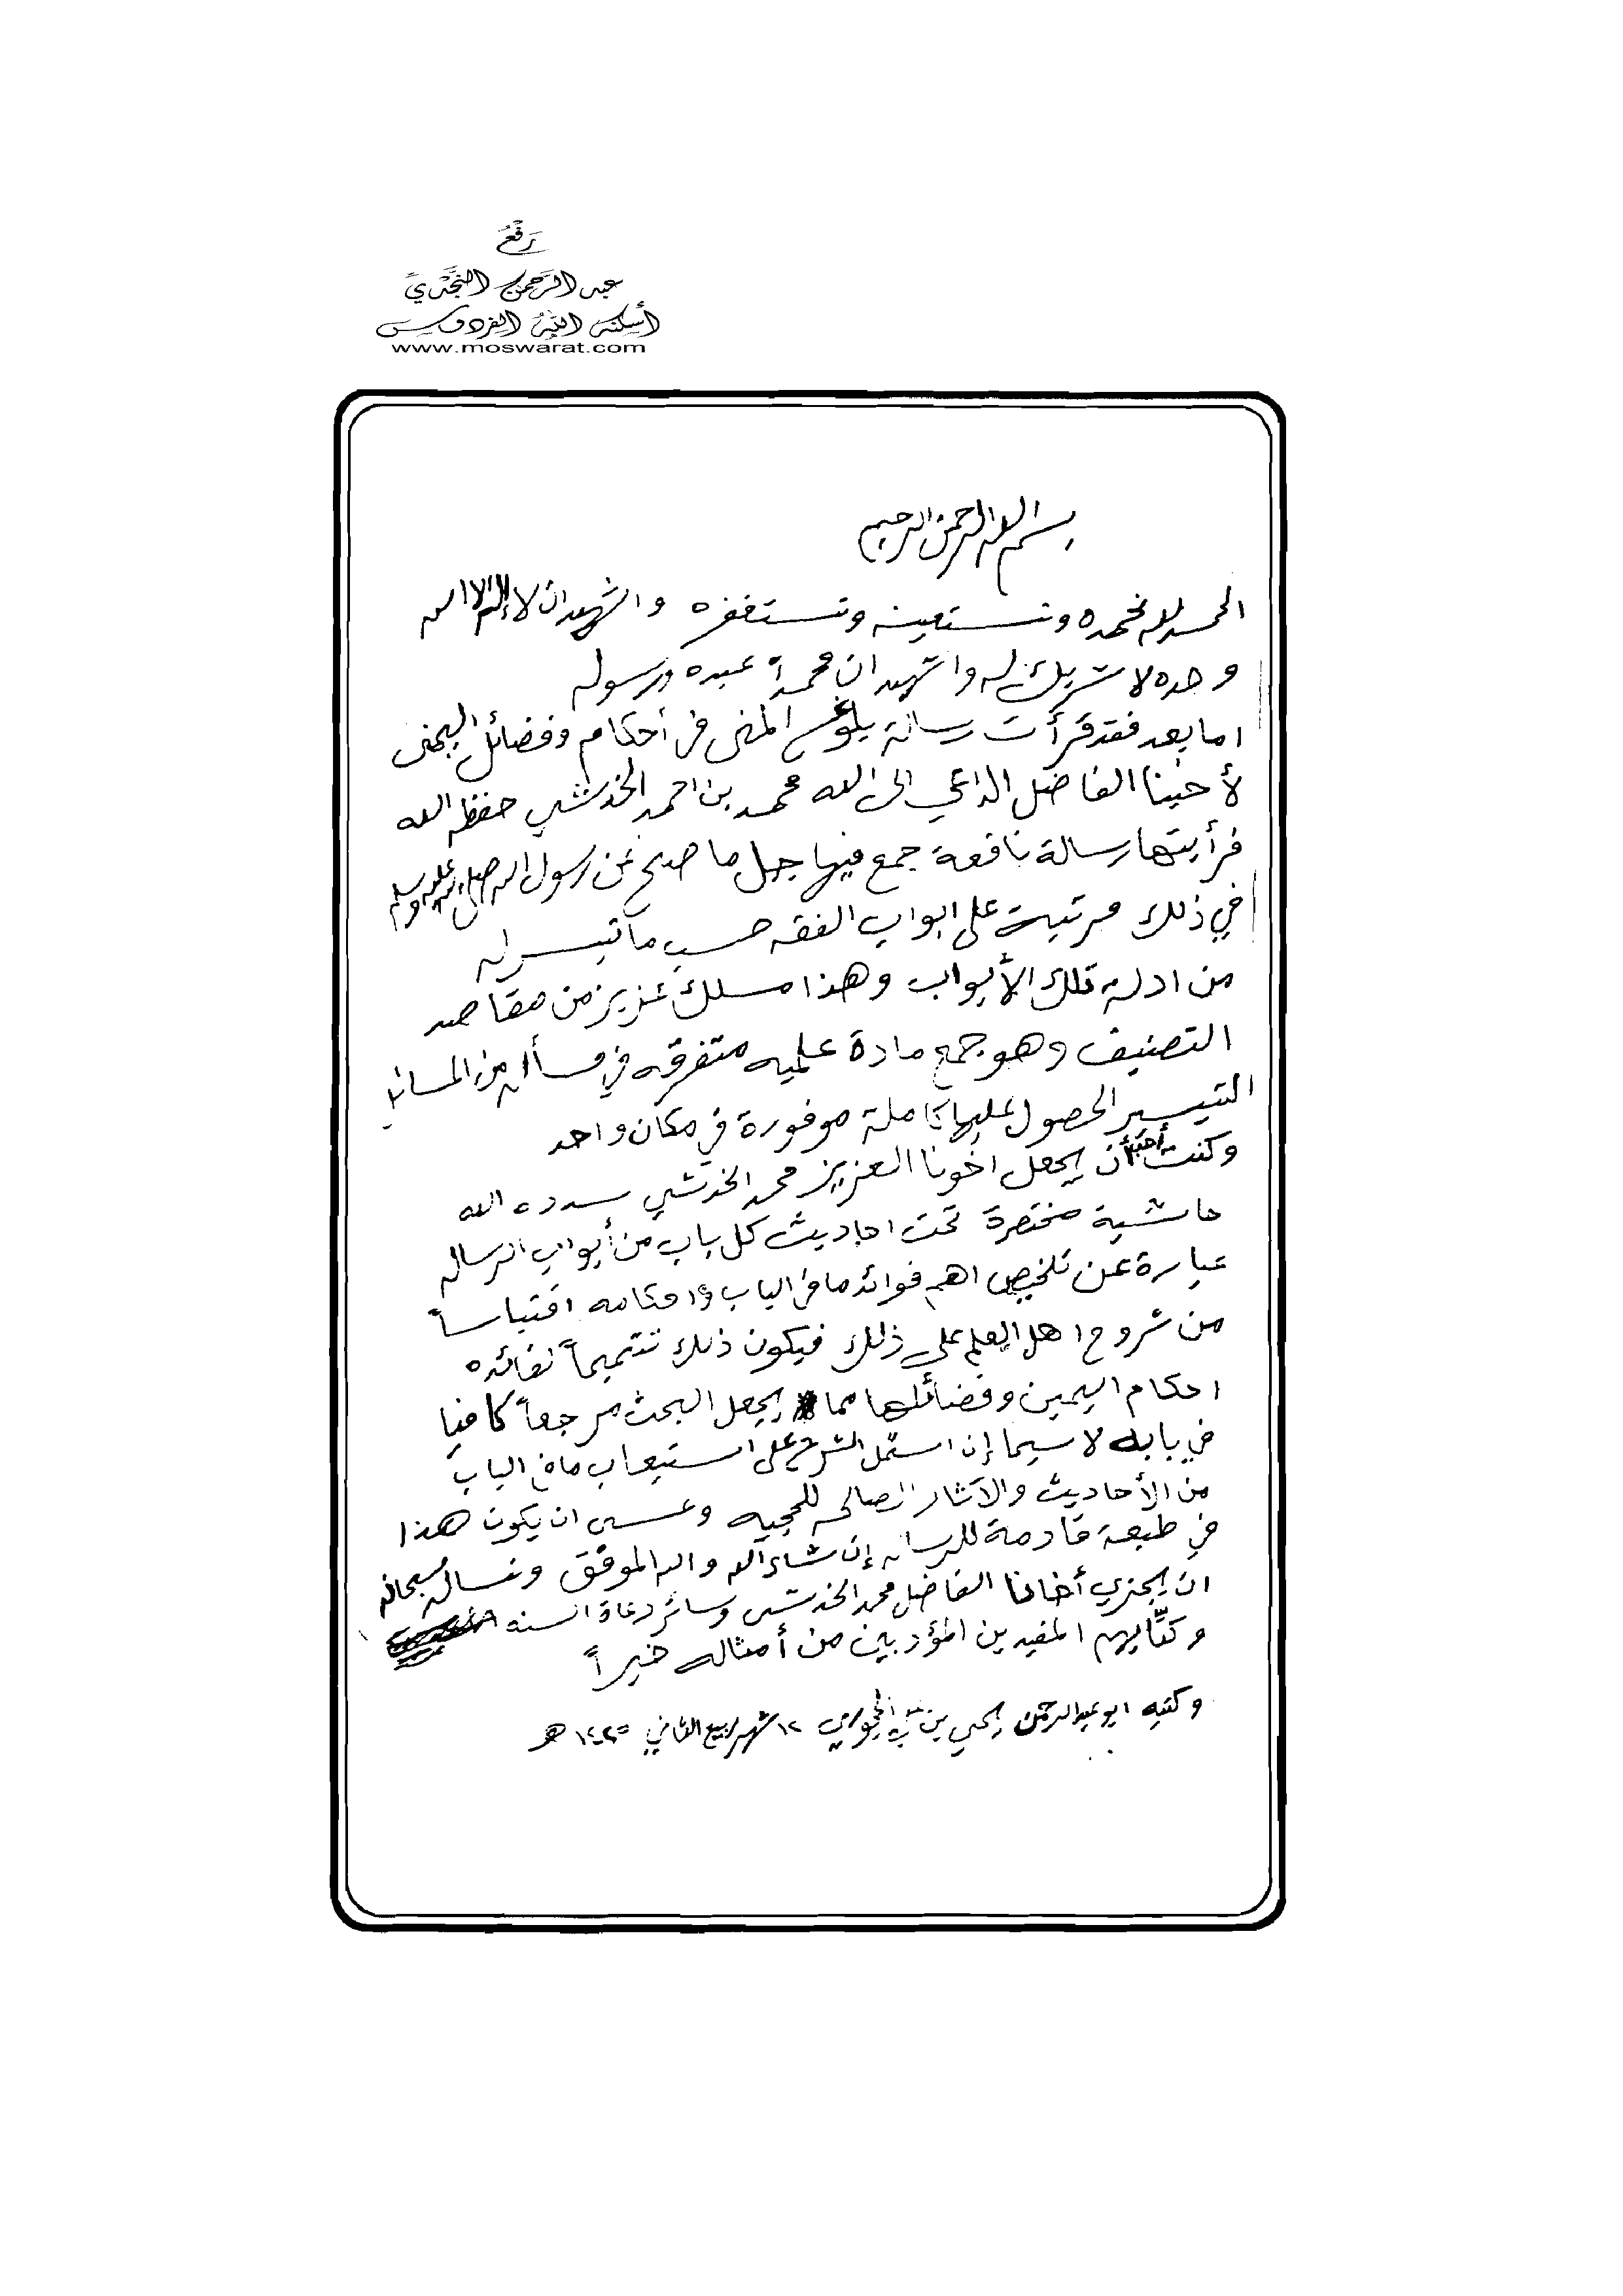 رَفْعُ
عبد الرَّحمن النَّجْدِيّ
أسكنه الله الفردوس
www.moswarat.com
بسم الله الرحمن الرحيم
الحمد لله نحمده ونستعينه ونستغفره واشهد ان لا إله الا الله
وحده لا شريك له واشهد ان محمداً عبده ورسوله
اما بعد فقد قرأت رسالة بلوغ المنى في أحكام وفضائل اليمنى
لأخينا الفاضل الداعي الى الله محمد بن احمد الخدشي حفظه الله
فرأيتها رسالة نافعة جمع فيها جل ما صح عن رسول الله صلى الله عليه وسلم
في ذلك مرتبة على ابواب الفقه حسب ما تيسر له
من ادلة تلك الأبواب وهذا مسلك عزيز من مقاصد
التصنيف وهو جمع مادة علميه متفرقه في مسألة من المسائل
لتيسير الحصول عليها كاملة موفورة في مكان واحد
وكنت أحب أن يجعل اخونا العزيز محمد الخدشي سدده الله
حاشية مختصرة تحت احاديث كل باب من أبواب الرساله
عبارة عن تلخيص اهم فوائد ما في الباب واحكامه اقتباساً
من شروح اهل العلم على ذلك فيكون ذلك تتميماً لفائده
احكام اليمين وفضائلها مما يجعل البحث مرجعاً كافيا
في بابه لا سيما إن اشتمل الشرح على استيعاب ما في الباب
من الأحاديث والآثار الصالحه للحجيه وعسى ان يكون هذا
في طبعة قادمة للرساله إن شاء الله والله الموفق ونسأله سبحانه
ان يجزي أخانا الفاضل محمد الخدشي وسائر دعاة السنه
وكتَّابهم المفيدين المؤدبين من أمثاله خيراً
وكتبه ابو عبد الرحمن يحيى بن علي الحجوري ١٢ شهر ربيع الثاني ١٤٢٥ هـ